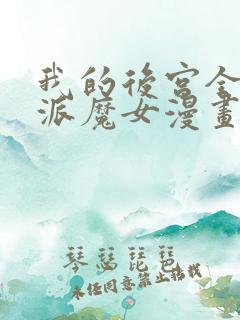 我的後宮全
派魔女漫畫
琴瑟琵琶
未经同意禁止搭载